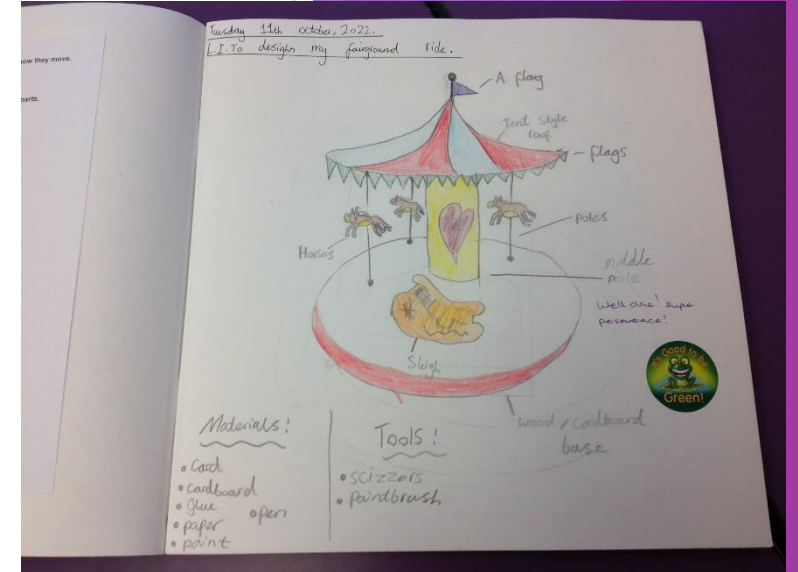 how they move.
parts.
Tuesday 11th october, 2022.
L.I.To desighn my fairground ride.
A flag
Tent style
roof
flags
Horses
poles
middle
pole
Well done! super
perseverence!
It's Good to be
Green!
Sleigh
wood / cardboard
base
Materials!
• Card
• cardboard
• glue
• pen
• paper
• paint
Tools!
• scizzers
• paintbrush